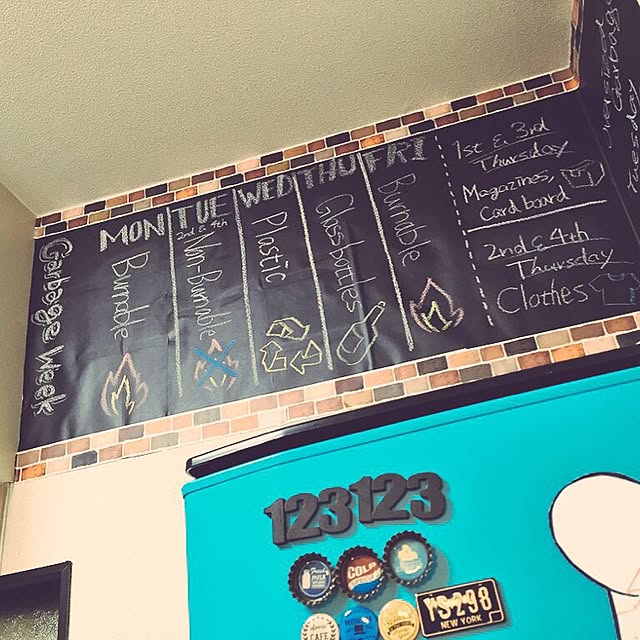 Garbage Week
MON
Burnable
TUE
2nd & 4th
Non-Burnable
WED
Plastic
THU
Glass bottles
FRI
Burnable
1st & 3rd
Thursday
Magazines,
Card board
2nd & 4th
Thursday
Clothes
Garbage
Tuesday
123123
Fresh
MILK
COLA
CAFE
YS-298
NEW YORK